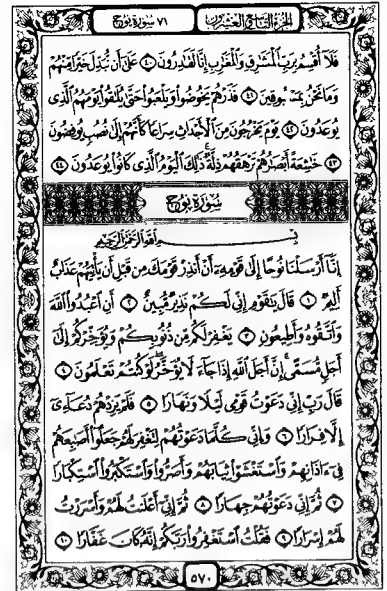 الجزء التاسع والعشرون
٧١ سورة نوح
فَلَآ أُقۡسِمُ بِرَبِّ ٱلۡمَشَٰرِقِ وَٱلۡمَغَٰرِبِ إِنَّا لَقَٰدِرُونَ ٤٠ عَلَىٰٓ أَن نُّبَدِّلَ خَيۡرٗا مِّنۡهُمۡ
وَمَا نَحۡنُ بِمَسۡبُوقِينَ ٤١ فَذَرۡهُمۡ يَخُوضُواْ وَيَلۡعَبُواْ حَتَّىٰ يُلَٰقُواْ يَوۡمَهُمُ ٱلَّذِي
يُوعَدُونَ ٤٢ يَوۡمَ يَخۡرُجُونَ مِنَ ٱلۡأَجۡدَاثِ سِرَاعٗا كَأَنَّهُمۡ إِلَىٰ نُصُبٖ يُوفِضُونَ
٤٣ خَٰشِعَةً أَبۡصَٰرُهُمۡ تَرۡهَقُهُمۡ ذِلَّةٞۚ ذَٰلِكَ ٱلۡيَوۡمُ ٱلَّذِي كَانُواْ يُوعَدُونَ ٤٤
سورة نوح
بِسۡمِ ٱللَّهِ ٱلرَّحۡمَٰنِ ٱلرَّحِيمِ
إِنَّآ أَرۡسَلۡنَا نُوحًا إِلَىٰ قَوۡمِهِۦٓ أَنۡ أَنذِرۡ قَوۡمَكَ مِن قَبۡلِ أَن يَأۡتِيَهُمۡ عَذَابٌ
أَلِيمٞ ١ قَالَ يَٰقَوۡمِ إِنِّي لَكُمۡ نَذِيرٞ مُّبِينٌ ٢ أَنِ ٱعۡبُدُواْ ٱللَّهَ
وَٱتَّقُوهُ وَأَطِيعُونِ ٣ يَغۡفِرۡ لَكُم مِّن ذُنُوبِكُمۡ وَيُؤَخِّرۡكُمۡ إِلَىٰٓ
أَجَلٖ مُّسَمًّىۚ إِنَّ أَجَلَ ٱللَّهِ إِذَا جَآءَ لَا يُؤَخَّرُۚ لَوۡ كُنتُمۡ تَعۡلَمُونَ ٤
قَالَ رَبِّ إِنِّي دَعَوۡتُ قَوۡمِي لَيۡلٗا وَنَهَارٗا ٥ فَلَمۡ يَزِدۡهُمۡ دُعَآءِيٓ
إِلَّا فِرَارٗا ٦ وَإِنِّي كُلَّمَا دَعَوۡتُهُمۡ لِتَغۡفِرَ لَهُمۡ جَعَلُوٓاْ أَصَٰبِعَهُمۡ
فِيٓ ءَاذَانِهِمۡ وَٱسۡتَغۡشَوۡاْ ثِيَابَهُمۡ وَأَصَرُّواْ وَٱسۡتَكۡبَرُواْ ٱسۡتِكۡبَارٗا
٧ ثُمَّ إِنِّي دَعَوۡتُهُمۡ جِهَارٗا ٨ ثُمَّ إِنِّيٓ أَعۡلَنتُ لَهُمۡ وَأَسۡرَرۡتُ
لَهُمۡ إِسۡرَارٗا ٩ فَقُلۡتُ ٱسۡتَغۡفِرُواْ رَبَّكُمۡ إِنَّهُۥ كَانَ غَفَّارٗا ١٠
٥٧٠